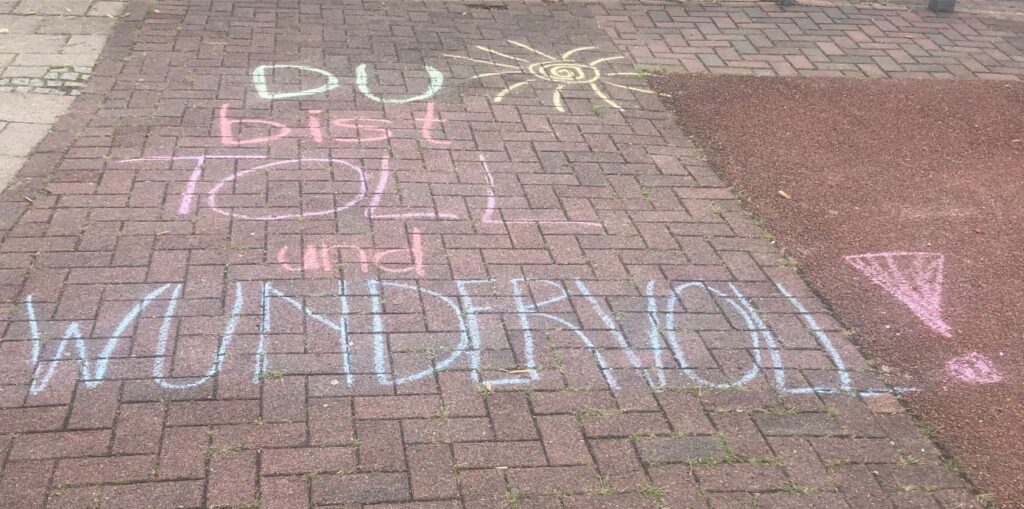 DU
bist
TOLL
und
WUNDERVOLL!